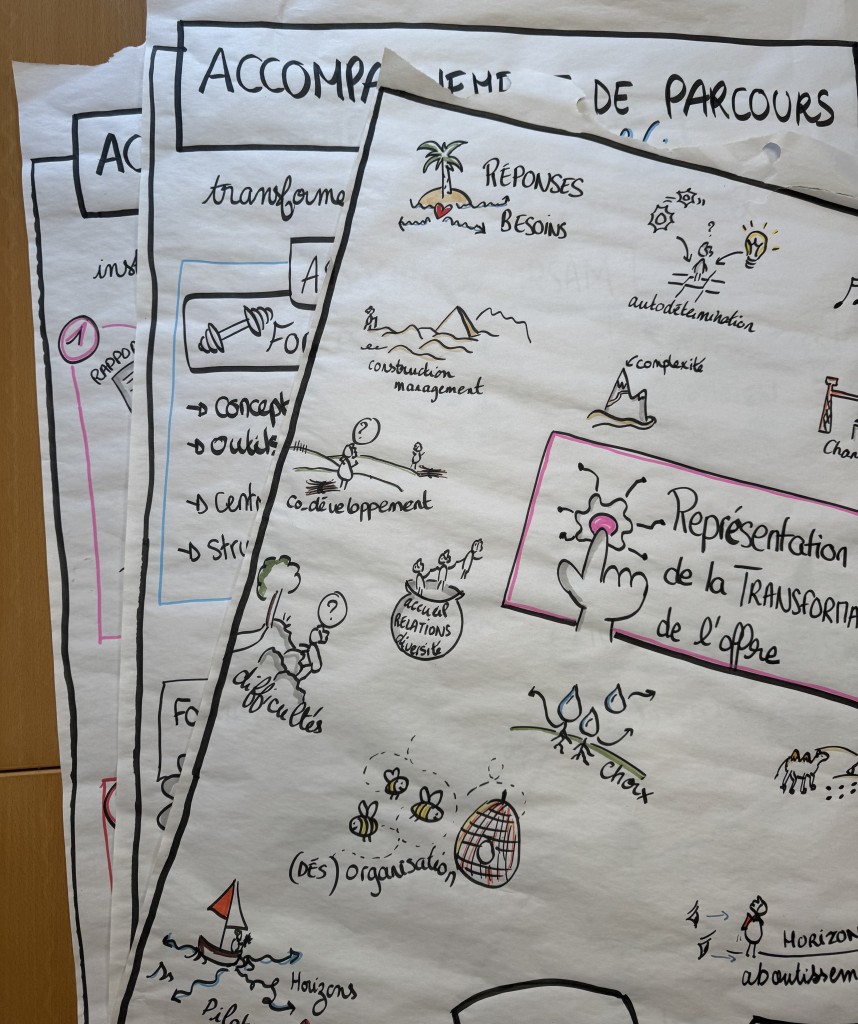 ACCOMPAGNEMENT DE PARCOURS
AC
transforme
inst
1
RAPPO
A
Fo
→ concept
→ outils
→ Cent
→ stru
FO
RÉPONSES
BESOINS
?
autodétermination
construction
management
complexité
Chan
?
co-développement
accueil
RELATIONS
diversité
Représentation
de la TRANSFORMA
de l'offre
?
difficultés
choix
(DÉS) organisation
Horizons
Pilot
HORIZON
aboutissem